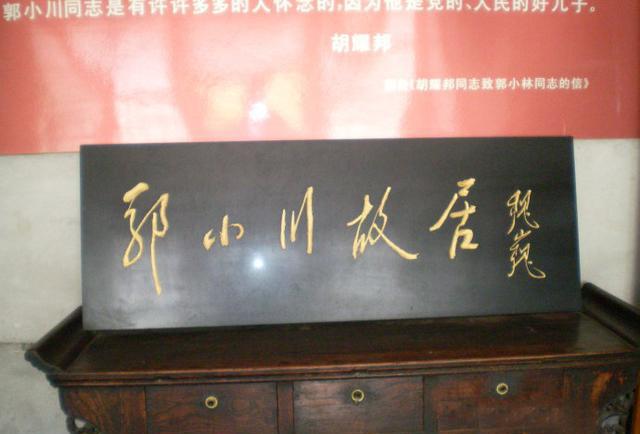 郭小川同志是有许许多多的人怀念的,因为他是党的、人民的好儿子。
胡耀邦
《胡耀邦同志致郭小林同志的信》
郭小川故居
魏巍